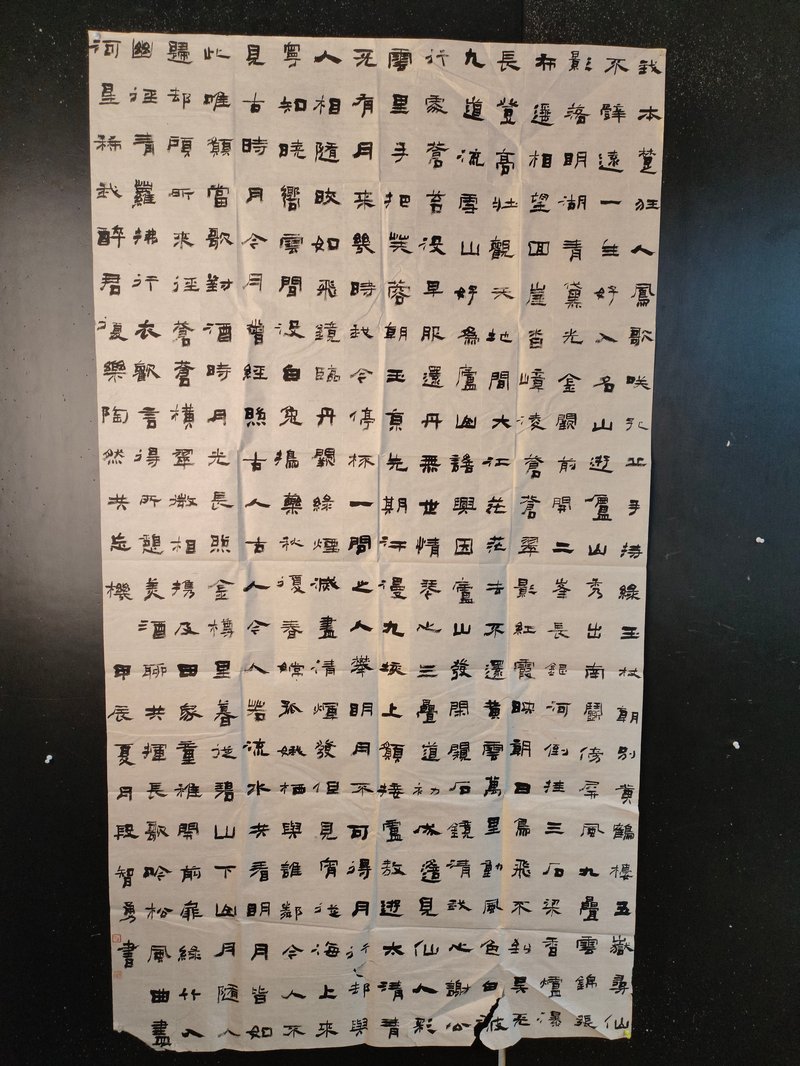 我本楚狂人鳳歌咲孔丘手持綠玉杖朝別黃鶴樓五嶽尋仙
不辭遠一生好入名山遊廬山秀出南鬭傍屏風九疊雲錦張
影落明湖青黛光金闕前開二峯長銀河倒挂三石梁香爐瀑
布遥相望回崖沓嶂凌蒼蒼翠影紅霞映朝日鳥飛不到吳天
長登高壯觀天地間大江茫茫去不還黃雲萬里動風色白波
九道流雪山好為廬山謠興因廬山發閑窺石鏡清我心謝公
行處蒼苔没早服還丹無世情琴心三疊道初成遥見仙人彩
雲里手把芙蓉朝玉京先期汗漫九垓上願接盧敖遊太清青
天有月來幾時我今停杯一問之人攀明月不可得月行却與
人相隨皎如飛鏡臨丹闕綠煙滅盡清輝發但見宵從海上來
寧知曉嚮雲間没白兔搗藥秋復春嫦孤娥栖與誰鄰今人不
見古時月今月曾經照古人古人今人若流水共看明月皆如
此唯願當歌對酒時月光長照金樽里暮從碧山下山月隨人
歸却顧所來徑蒼蒼橫翠微相攜及田家童稚開前扉綠竹入
幽徑青蘿拂行衣歡言得所憩美酒聊共揮長歌吟松風曲盡
河星稀我醉君復樂陶然共忘機 甲辰夏月段智勇書